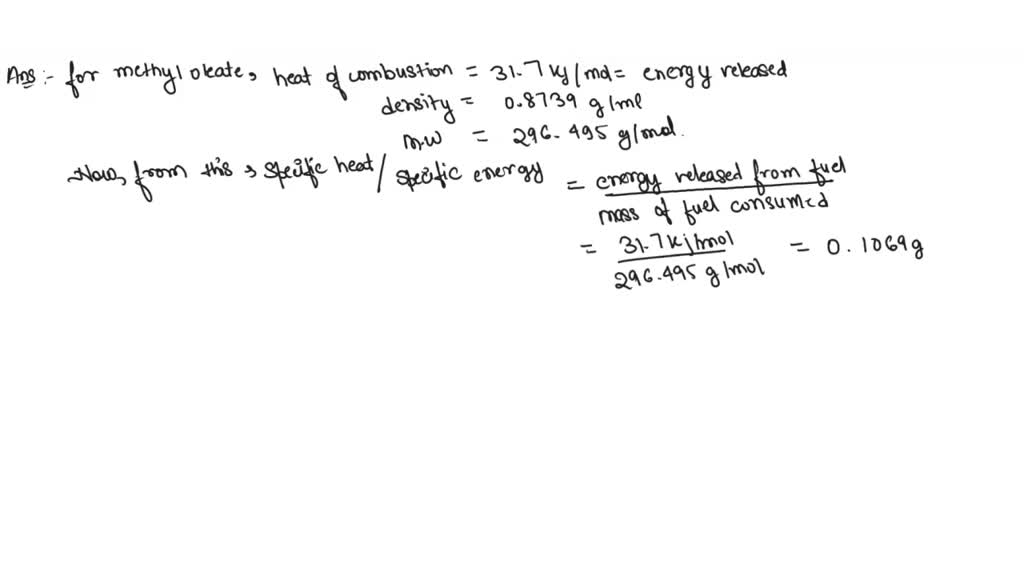 Ans :- for methyl oleate, heat of combustion = 31.7 kj/mol = energy released
density = 0.8739 g/ml
m.w = 296.495 g/mol.
Now, from this, specific heat / specific energy = energy released from fuel
mass of fuel consumed
= 31.7 kj/mol
296.495 g/mol
= 0.1069 g